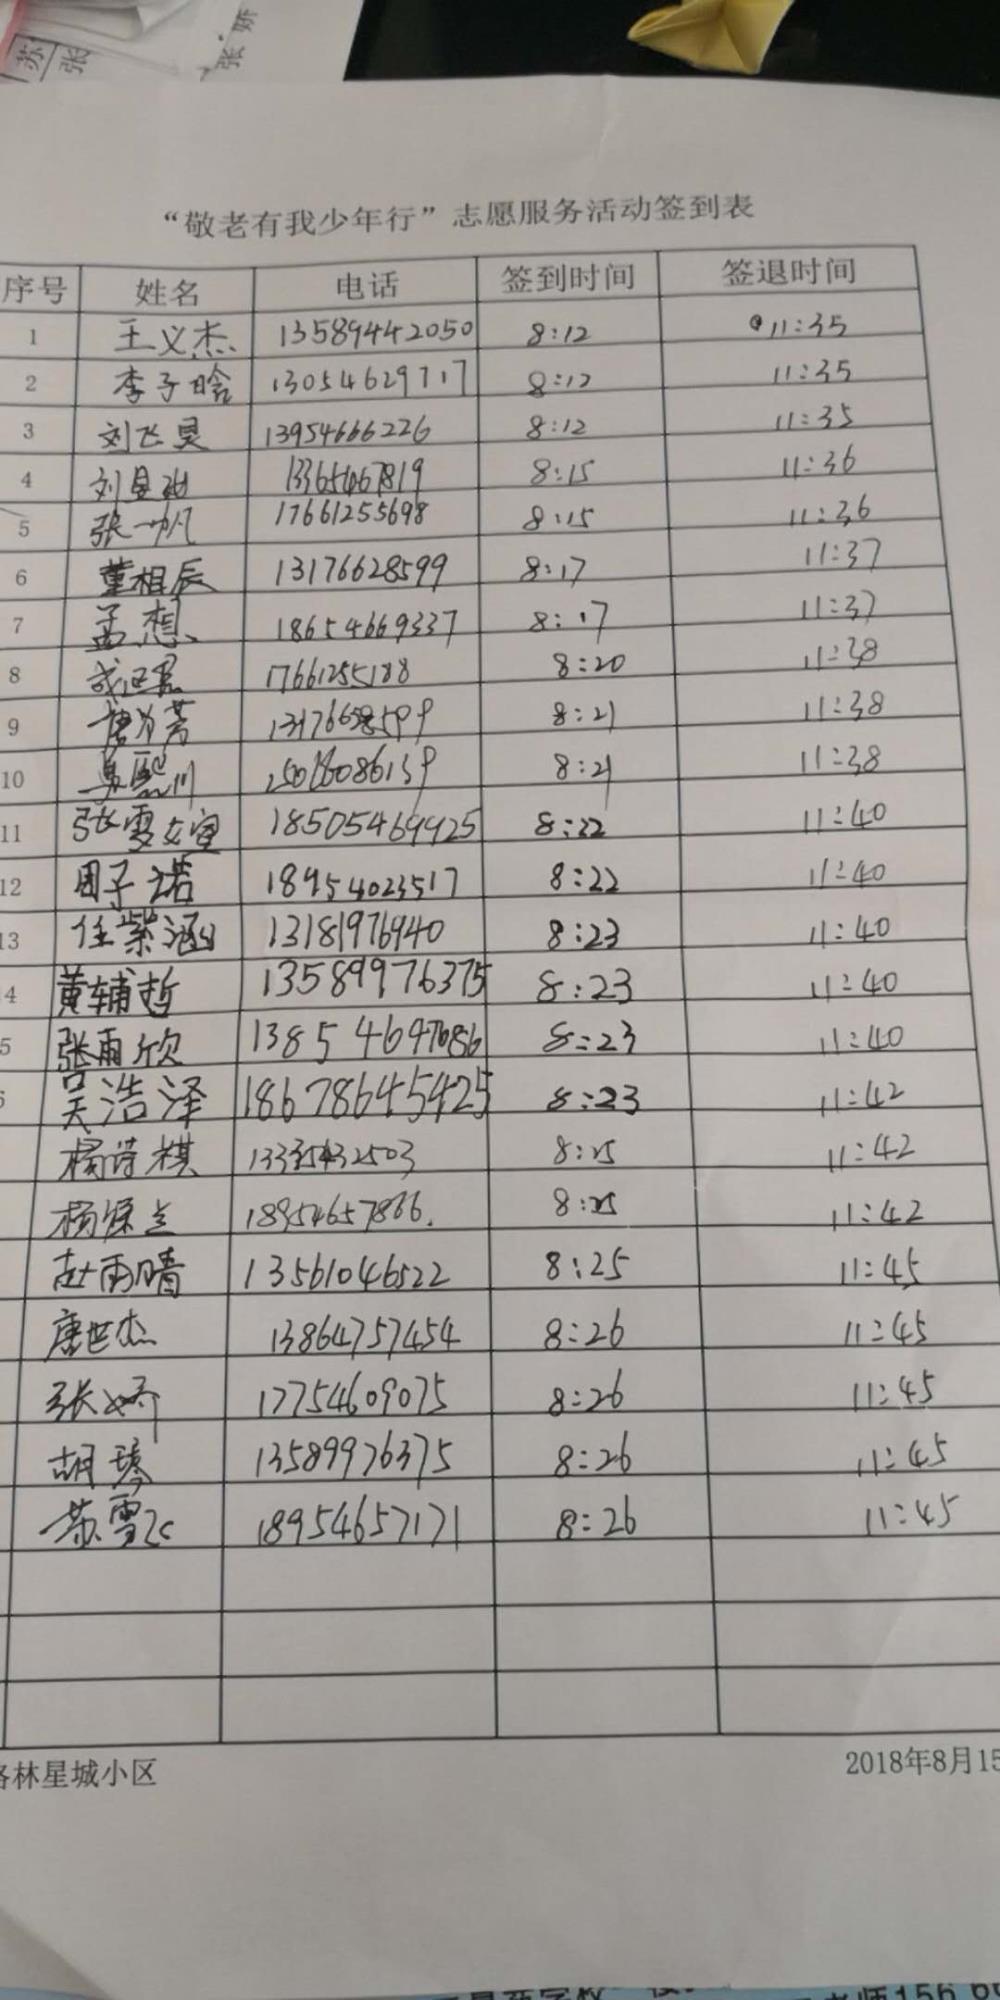 苏 张
张 娇
“敬老有我少年行”志愿服务活动签到表
序号 姓名 电话 签到时间 签退时间
1 王义杰 13589442050 8:12 11:35
2 李子晗 13054629717 8:12 11:35
3 刘飞昊 13954666226 8:12 11:35
4 刘 13365467819 8:15 11:36
5 张一帆 17661255698 8:15 11:36
6 董相辰 13176628599 8:17 11:37
7 孟想 18654669337 8:17 11:37
8 17661255188 8:20 11:38
9 8:21 11:38
10 8:21 11:38
11 张雯宣 18505469925 8:22 11:40
12 周子诺 18954023517 8:22 11:40
13 任紫涵 13181976940 8:23 11:40
4 黄辅哲 13589976375 8:23 11:40
5 张雨欣 13854697686 8:23 11:40
6 吴浩泽 18678645425 8:23 11:42
杨诗棋 8:25 11:42
杨 18954657866. 8:25 11:42
赵雨晴 13561046522 8:25 11:45
唐世杰 13864757454 8:26 11:45
张娇 17754609075 8:26 11:45
胡琴 13589976375 8:26 11:45
苏雪飞 18954657171 8:26 11:45
林星城小区 2018年8月15